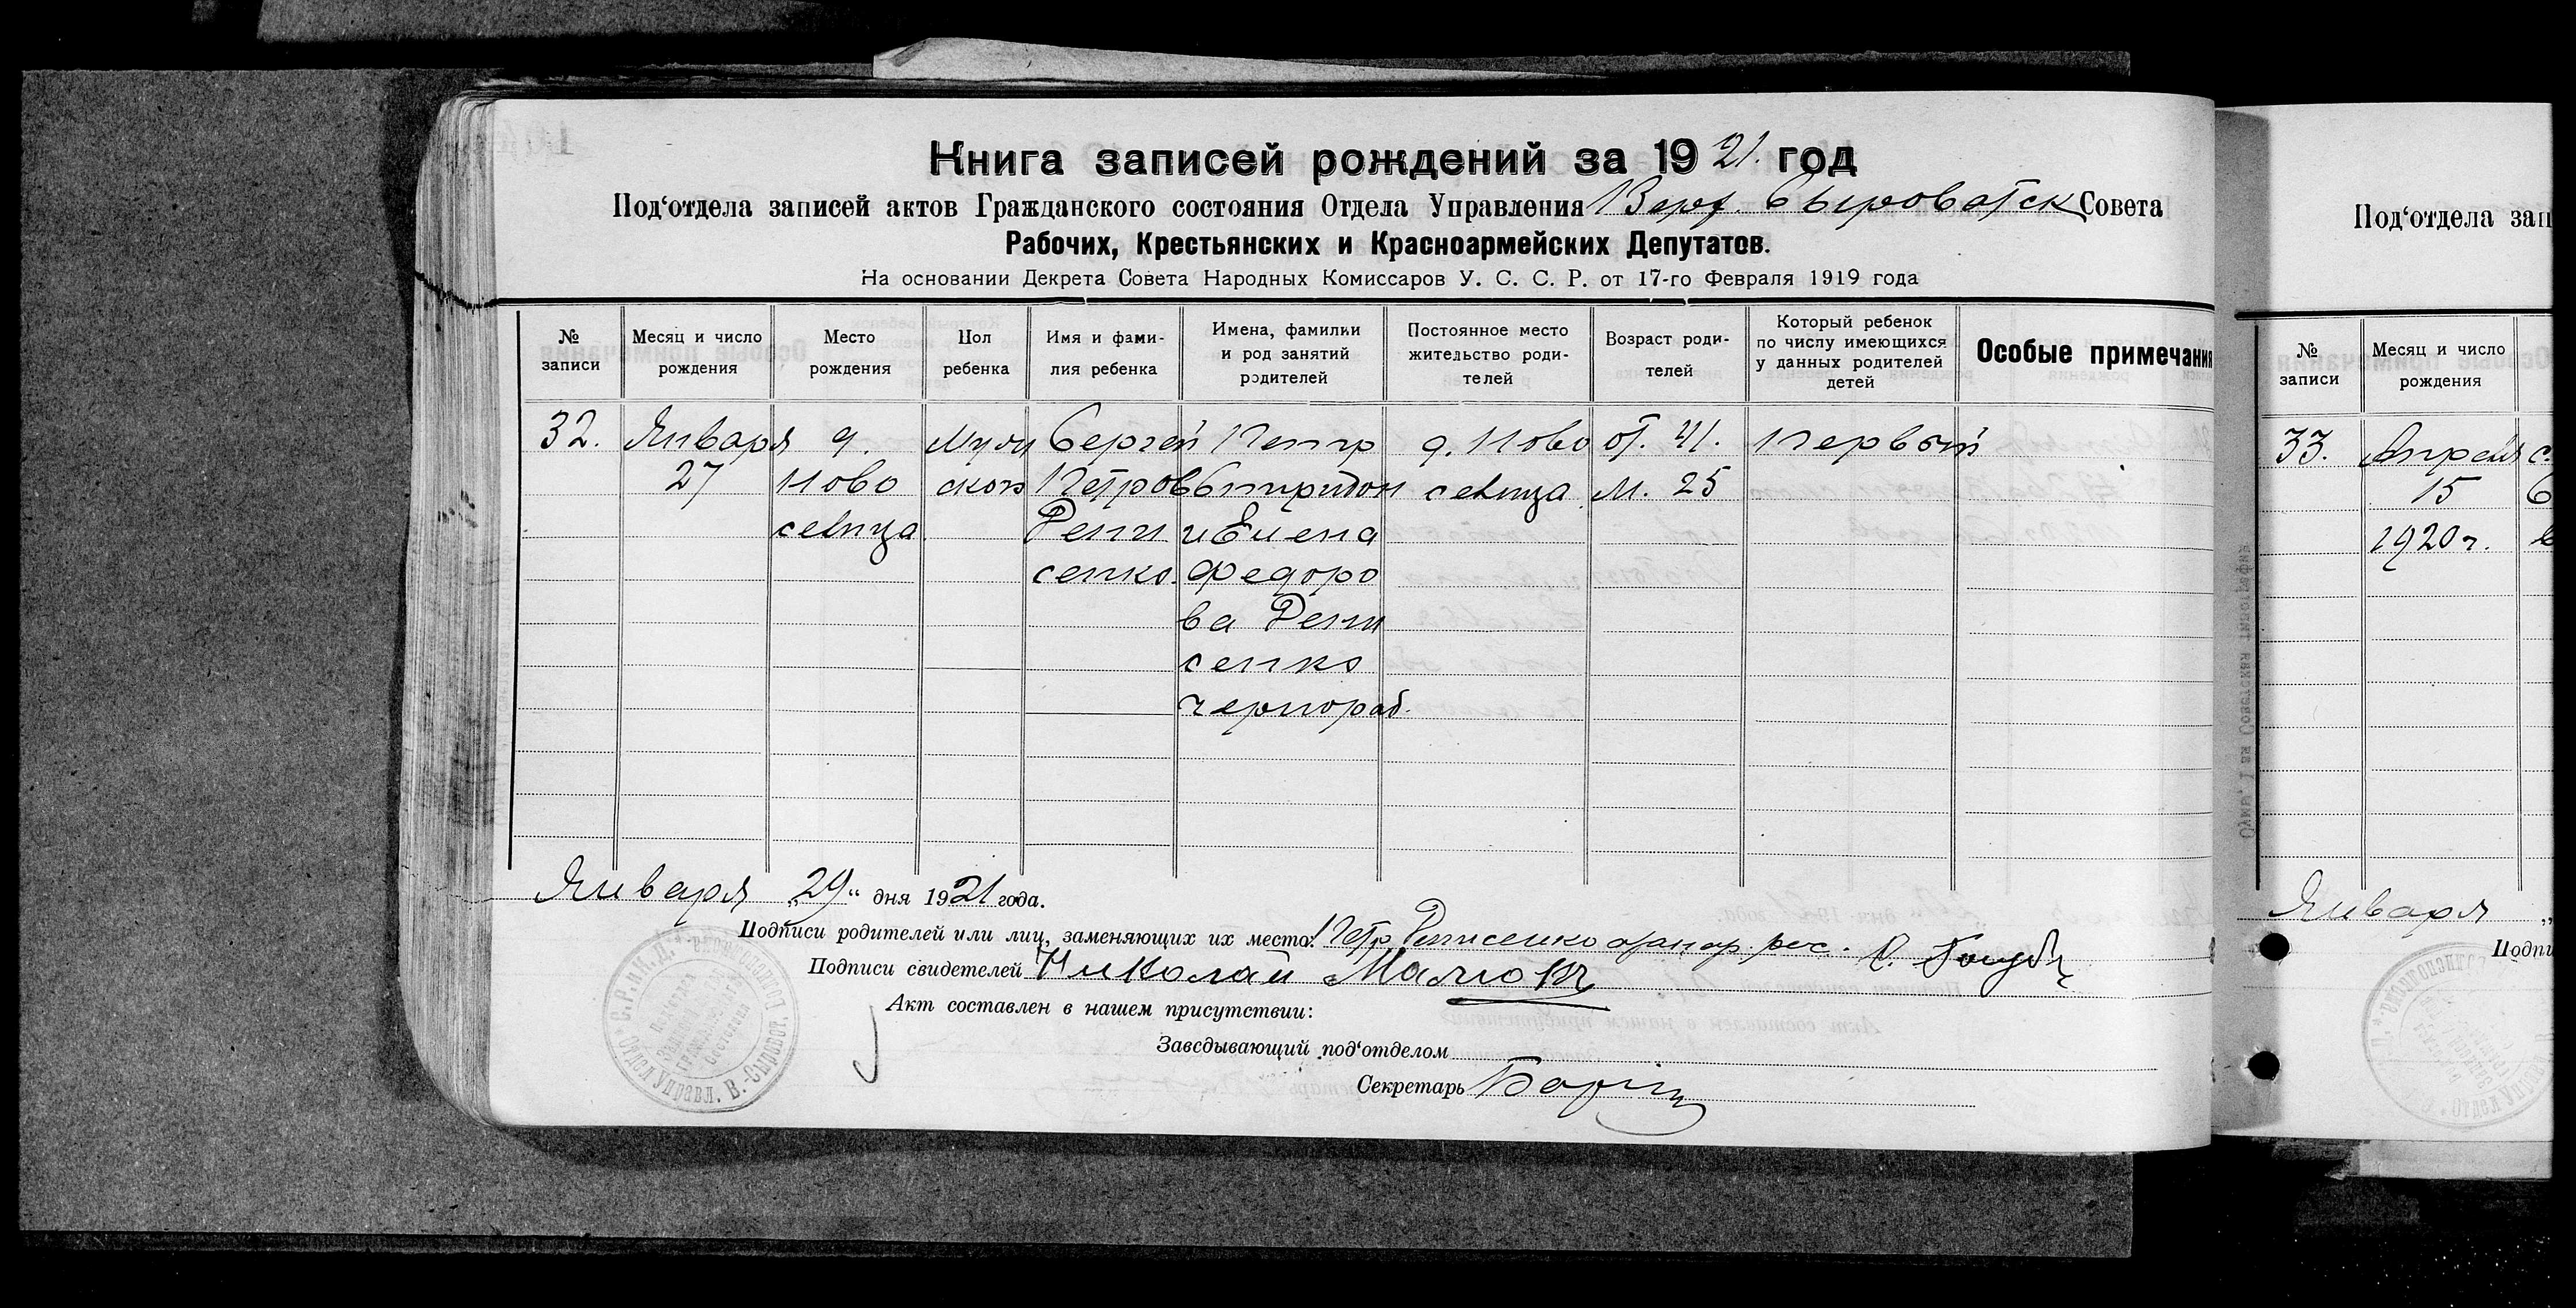 Книга записей рождений за 1921. год
Под‘отдела записей актов Гражданского состояния Отдела Управления Верх. Сыроватск Совета
Рабочих, Крестьянских и Красноармейских Депутатов.
На основании Декрета Совета Народных Комиссаров У. С. С. Р. от 17-го Февраля 1919 года
№ записи
Месяц и число рождения
Место рождения
Пол ребенка
Имя и фами-
лия ребенка
Имена, фамилии
и род занятий
родителей
Постоянное место
жительство роди-
телей
Возраст роди-
телей
Который ребенок
по числу имеющихся
у данных родителей
детей
Особые примечания
32. Января д. Муж Сергей Петр д. Ново от. 41. Первый
27 Ново ской Петров Спиридон севица м. 25
севица Реп и Елена
сенко. Федоро
ва
сенко
чернораб.
Января „29“ дня 1921 года.
Подписи родителей или лиц, заменяющих их место: Петр
Подписи свидетелей Николай
Акт составлен в нашем присутствии:
Заведывающий под‘отделом
Секретарь
Отдел Управл. В.-Сыроват.
Под‘отдела зап
№ записи
Месяц и число рождения
33. Апреля с.
15
1920 г.
Января „
Подпи